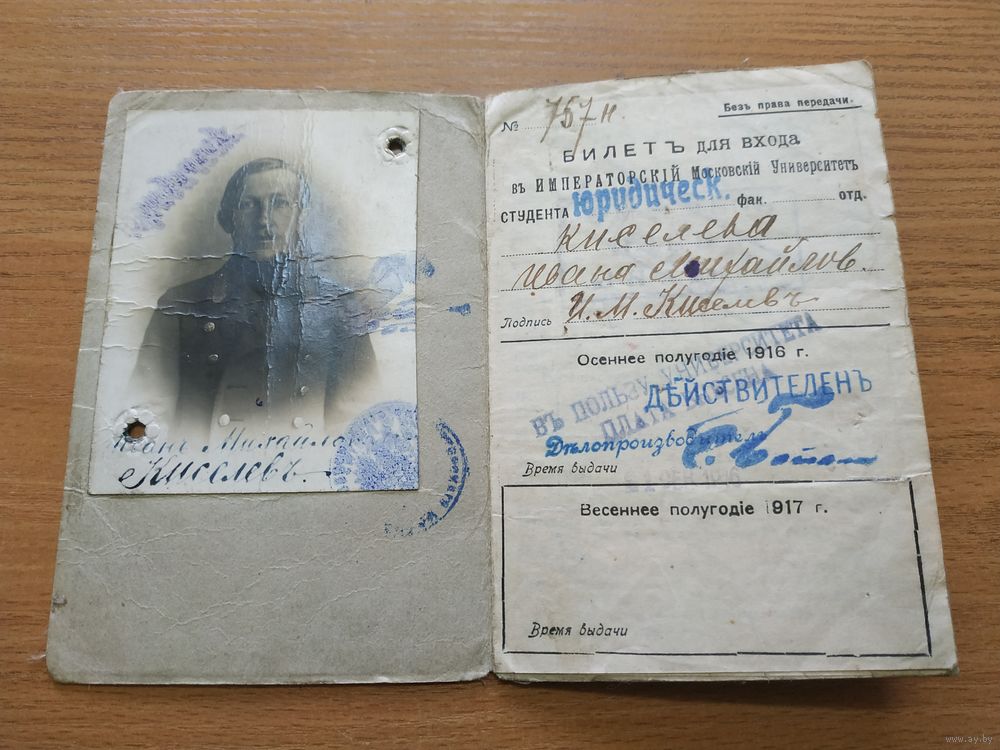 Иванъ Михайлов
Киселевъ.
№ 757 н.
Безъ права передачи.
БИЛЕТЪ для входа
въ ИМПЕРАТОРСКІЙ Московскій Университетъ
СТУДЕНТА Юридическ. фак. отд.
Киселева
Ивана Михайлов.
Подпись И. М. Киселевъ
Осеннее полугодіе 1916 г.
ВЪ ПОЛЬЗУ УНИВЕРСИТЕТА
ПЛАТА ВНЕСЕНА
ДѢЙСТВИТЕЛЕНЪ
Дѣлопроизводитель
Время выдачи
Весеннее полугодіе 1917 г.
Время выдачи
www.ay.by